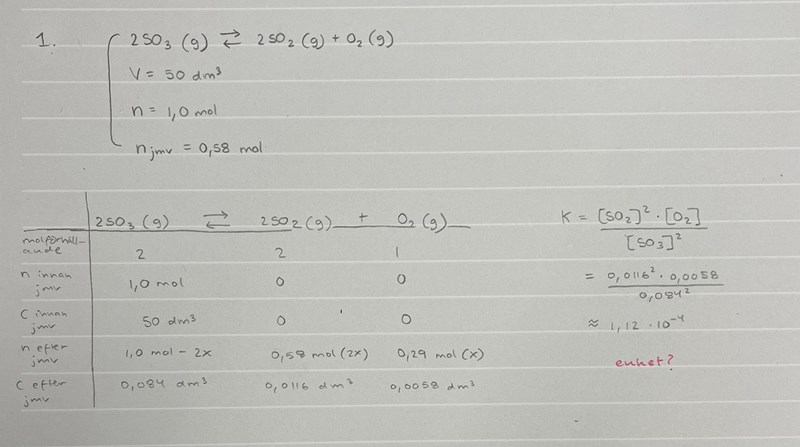 1.
2SO₃ (g) ⇄ 2SO₂ (g) + O₂ (g)
V = 50 dm³
n = 1,0 mol
n jmv = 0,58 mol
2SO₃ (g) ⇄ 2SO₂ (g) + O₂ (g)
molförhåll-
ande 2 2 1
n innan
jmv 1,0 mol 0 0
C innan
jmv 50 dm³ 0 0
n efter
jmv 1,0 mol - 2x 0,58 mol (2x) 0,29 mol (x)
C efter
jmv 0,084 dm³ 0,0116 dm³ 0,0058 dm³
K = [SO₂]² · [O₂]
[SO₃]²
= 0,0116² · 0,0058
0,084²
≈ 1,12 · 10⁻⁴
enhet?